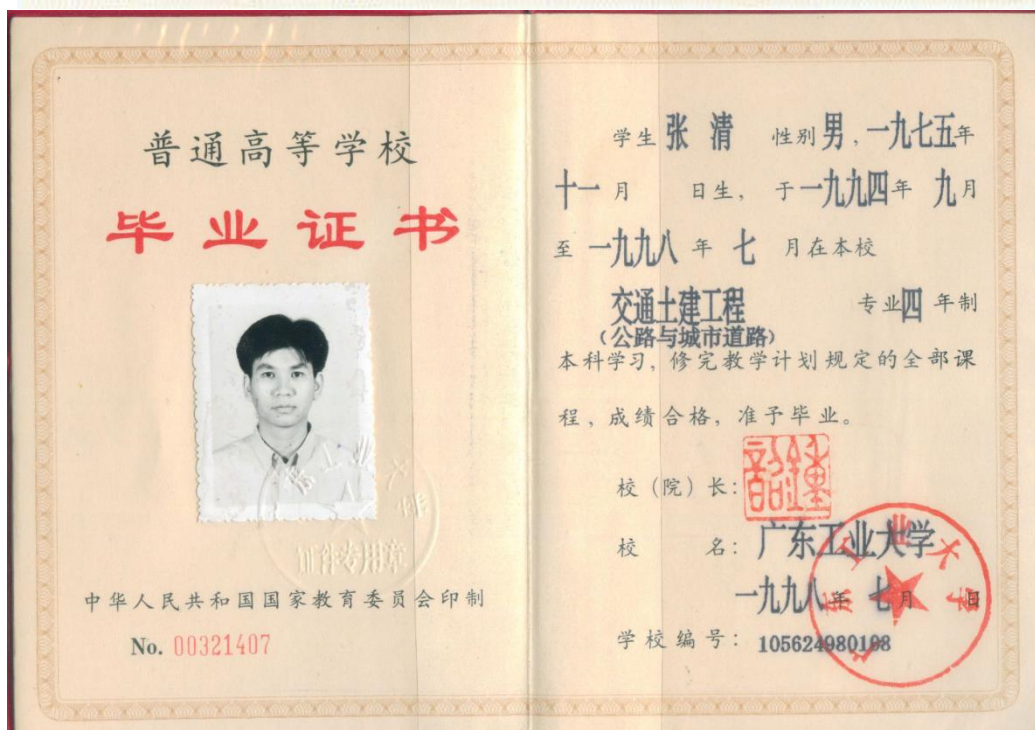 普通高等学校
毕业证书
证件专用章
中华人民共和国国家教育委员会印制
No. 00321407
学生 张清 性别 男，一九七五年
十一月 日生，于一九九四年 九月
至 一九九八 年 七 月在本校
交通土建工程 专业四年制
（公路与城市道路）
本科学习，修完教学计划规定的全部课
程，成绩合格，准予毕业。
校（院）长：
校 名：广东工业大学
一九九八年 七月 日
学校编号：105624980198
广东工业大学